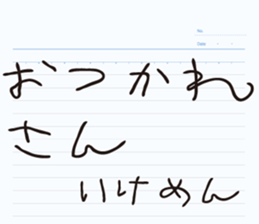 No.
Date ・ ・
おつかれ
さん
いけめん